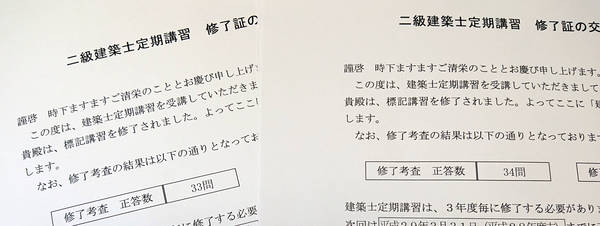 二級建築士定期講習 修了証の
謹啓 時下ますますご清栄のこととお慶び申し上げ
この度は、建築士定期講習を受講していただきま
貴殿は、標記講習を修了されました。よってここに
します。
なお、修了考査の結果は以下の通りとなってお
修了考査 正答数 33問
に修了する必要
二級建築士定期講習 修了証の交
謹啓 時下ますますご清栄のこととお慶び申し上げます。
この度は、建築士定期講習を受講していただきまして
貴殿は、標記講習を修了されました。よってここに「建
します。
なお、修了考査の結果は以下の通りとなっております
修了考査 正答数 34問
建築士定期講習は、3年度毎に修了する必要があり
次回は平成29年3月31日